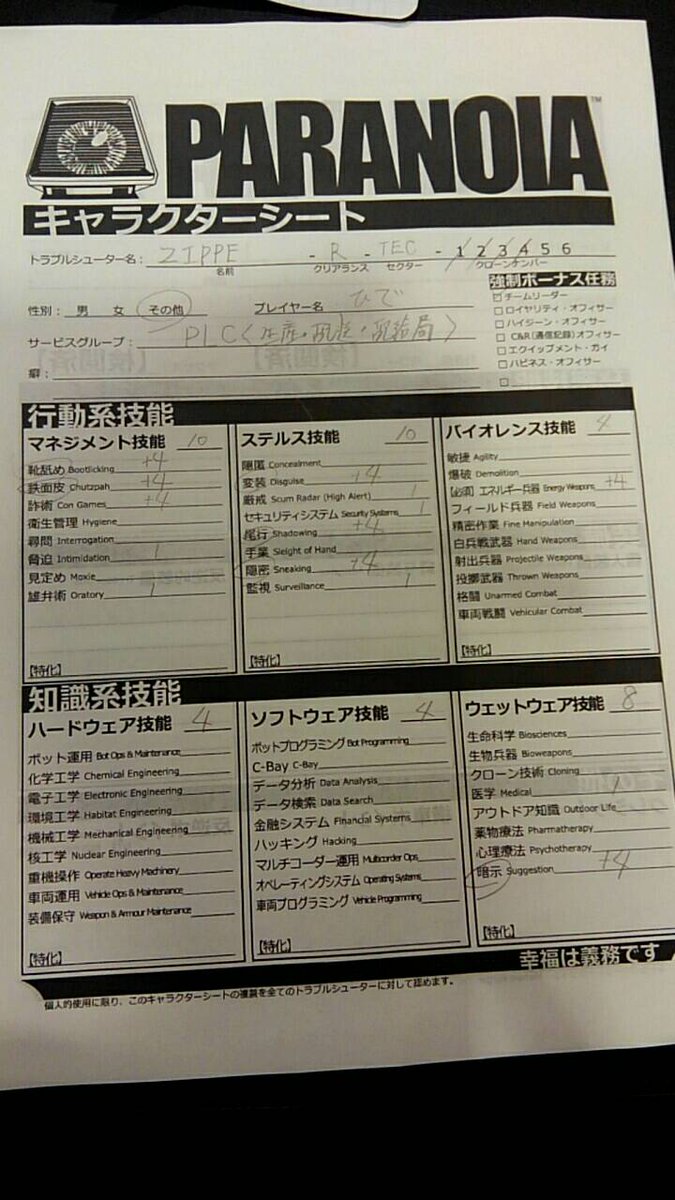 PARANOIA™
キャラクターシート
トラブルシューター名： ZIPPE - R - TEC - 1 2 3 4 5 6
名前 クリアランス セクター クローンナンバー
強制ボーナス任務
□ チームリーダー
□ ロイヤリティ・オフィサー
□ ハイジーン・オフィサー
□ C&R(通信記録)オフィサー
□ エクイップメント・ガイ
□ ハピネス・オフィサー
□
性別： 男 女 その他 プレイヤー名 ひで
サービスグループ： PLC〈生産・配送・配給局〉
癖：
行動系技能
マネジメント技能 10
靴舐め Bootlicking +4
鉄面皮 Chutzpah +4
詐術 Con Games +4
衛生管理 Hygiene
尋問 Interrogation
脅迫 Intimidation 1
見定め Moxie
雄弁術 Oratory 1
【特化】
ステルス技能 10
隠匿 Concealment
変装 Disguise +4
厳戒 Scum Radar (High Alert) 1
セキュリティシステム Security Systems 1
尾行 Shadowing +4
手業 Sleight of Hand
隠密 Sneaking +4
監視 Surveillance 1
【特化】
バイオレンス技能 4
敏捷 Agility
爆破 Demolition
【必須】エネルギー兵器 Energy Weapons +4
フィールド兵器 Field Weapons
精密作業 Fine Manipulation
白兵戦武器 Hand Weapons
射出兵器 Projectile Weapons
投擲武器 Thrown Weapons
格闘 Unarmed Combat
車両戦闘 Vehicular Combat
【特化】
知識系技能
ハードウェア技能 4
ボット運用 Bot Ops & Maintenance
化学工学 Chemical Engineering
電子工学 Electronic Engineering
環境工学 Habitat Engineering
機械工学 Mechanical Engineering
核工学 Nuclear Engineering
重機操作 Operate Heavy Machinery
車両運用 Vehicle Ops & Maintenance
装備保守 Weapon & Armour Maintenance
【特化】
ソフトウェア技能 4
ボットプログラミング Bot Programming
C-Bay C-Bay
データ分析 Data Analysis
データ検索 Data Search
金融システム Financial Systems
ハッキング Hacking
マルチコーダー運用 Multicorder Ops
オペレーティングシステム Operating Systems
車両プログラミング Vehicle Programming
【特化】
ウェットウェア技能 8
生命科学 Biosciences
生物兵器 Bioweapons
クローン技術 Cloning
医学 Medical 1
アウトドア知識 Outdoor Life
薬物療法 Pharmatherapy
心理療法 Psychotherapy
暗示 Suggestion +4
【特化】
幸福は義務です
個人的使用に限り、このキャラクターシートの複製を全てのトラブルシューターに対して認めます。